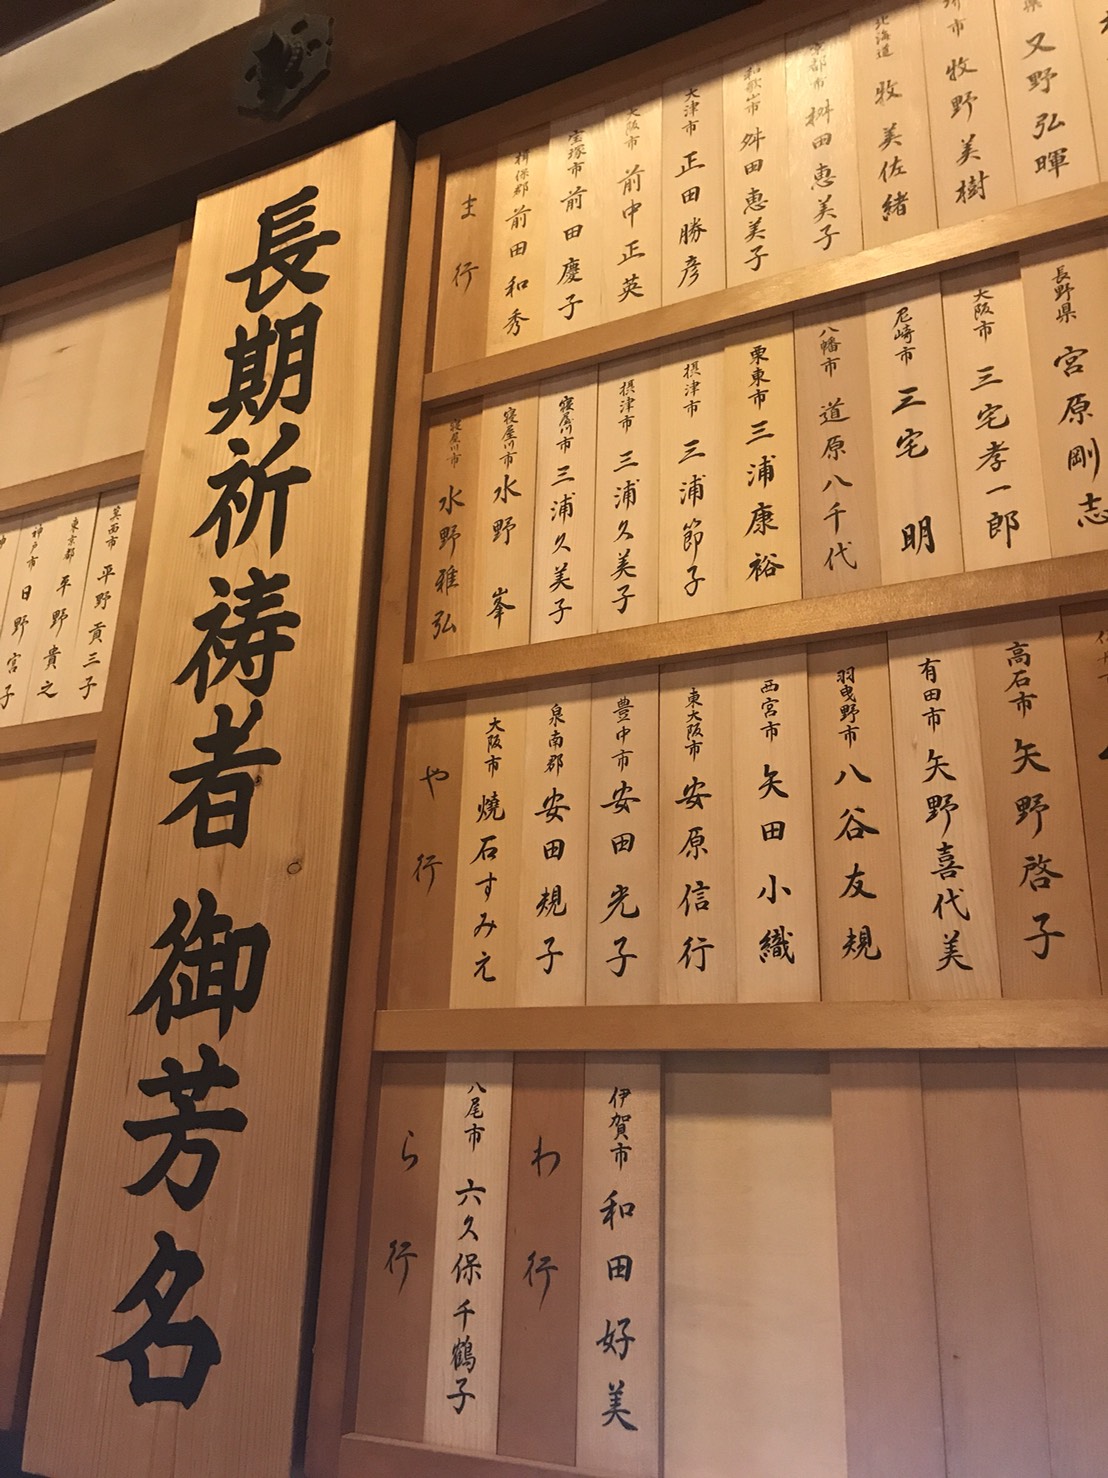 長期祈祷者 御芳名
ま行
揖保郡 前田和秀
宝塚市 前田慶子
大阪市 前中正英
大津市 正田勝彦
和歌山市 舛田恵美子
京都市 桝田恵美子
北海道 牧美佐緒
堺市 牧野美樹
又野弘暉
寝屋川市 水野雅弘
寝屋川市 水野峯
寝屋川市 三浦久美子
摂津市 三浦久美子
摂津市 三浦節子
栗東市 三浦康裕
八幡市 道原八千代
尼崎市 三宅明
大阪市 三宅孝一郎
長野県 宮原剛志
や行
大阪市 焼石すみえ
泉南郡 安田規子
豊中市 安田光子
東大阪市 安原信行
西宮市 矢田小織
羽曳野市 八谷友規
有田市 矢野喜代美
高石市 矢野啓子
ら行
八尾市 六久保千鶴子
わ行
伊賀市 和田好美
箕面市 平野貢三子
東京都 平野貴之
神戸市 日野宮子